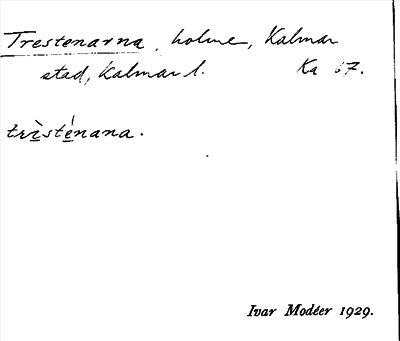 Trestenarna, holme, Kalmar
stad, Kalmar l. Ka 67.
trìsténana.
Ivar Modéer 1929.